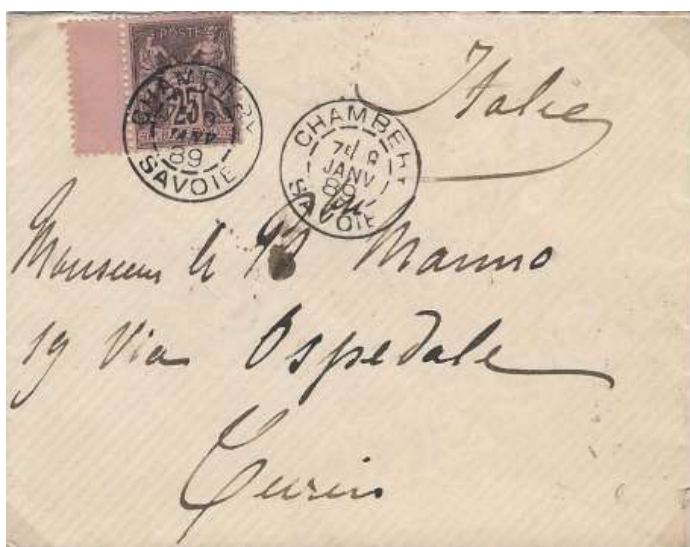 POSTE
25
CHAMBERY
8
JANV
89
SAVOIE
CHAMBERY
7E 8
JANV
89
SAVOIE
Italie
Monsieur le Manno
19 Via Ospedale
Turin